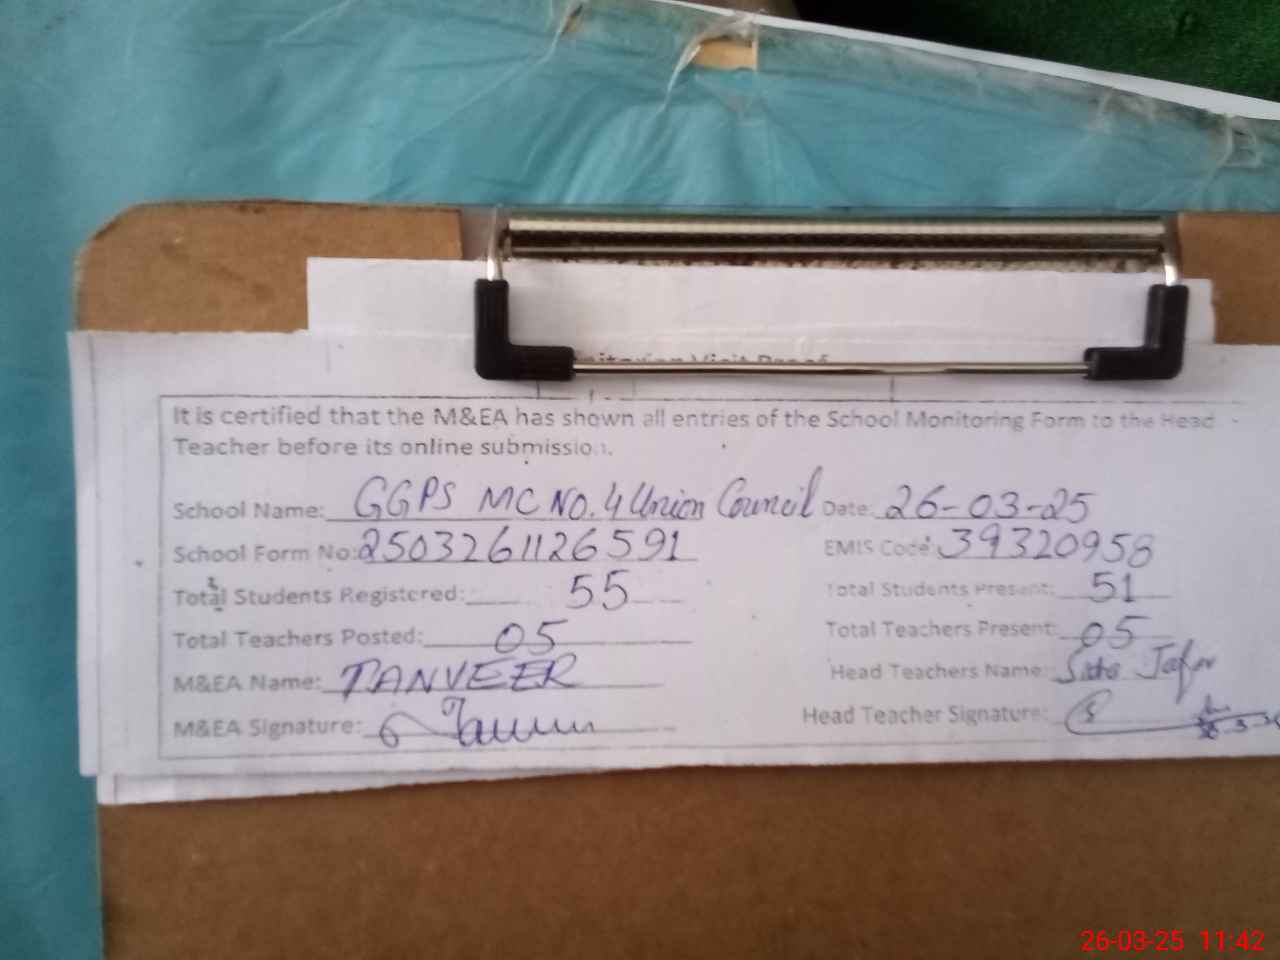 It is certified that the M&EA has shown all entries of the School Monitoring Form to the Head
Teacher before its online submission.
School Name: GGPS MC NO. 4 Union Council Date: 26-03-25
School Form No: 2503261126591 EMIS Code: 39320958
Total Students Registered: 55 Total Students Present: 51
Total Teachers Posted: 05 Total Teachers Present: 05
M&EA Name: TANVEER Head Teachers Name:
M&EA Signature: Head Teacher Signature:
26-03-25 11:42